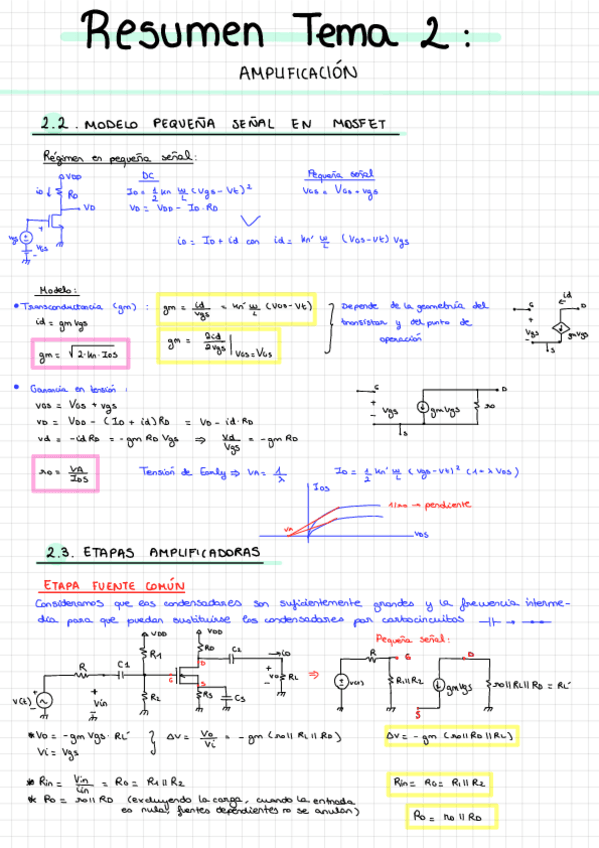 Resumen Tema 2:
AMPLIFICACIÓN
2.2. MODELO PEQUEÑA SEÑAL EN MOSFET
Régimen en pequeña señal:
DC
Pequeña señal
VDD
iD ↓ RD
VD
vgs
VGS
ID = 1/2 kn W/L (VGS - Vt)²
VD = VDD - ID·RD
vGS = VGS + vgs
iD = ID + id con id = kn' W/L (VGS - Vt) vgs
Modelo:
• Transconductancia (gm) : gm = id/vgs = kn' W/L (VGS - Vt)
id = gm vgs
gm = √2·kn·IDS
gm = ∂id/∂vgs | vGS = VGS
Depende de la geometría del
transistor y del punto de
operación
G
id
D
+
Vgs
-
gmVgs
S
• Ganancia en tensión :
vGS = VGS + vgs
vD = VDD - (ID + id)RD = VD - id·RD
vd = -id RD = -gm RD Vgs ⇒ vd/vgs = -gm RD
G
D
+
Vgs
-
gmVgs
ro
S
ro = VA/IDS
Tensión de Early ⇒ VA = 1/λ
ID = 1/2 kn' W/L (Vgs - Vt)² (1 + λ VDS)
IDS
1/ro → pendiente
VA
VDS
2.3. ETAPAS AMPLIFICADORAS
ETAPA FUENTE COMÚN
Consideramos que los condensadores son suficientemente grandes y la frecuencia interme-
dia para que puedan sustituirse los condensadores por cortocircuitos
Pequeña señal:
VDD
VDD
R1
RD
C2
io
R
C1
D
G
S
+
vo
-
RL
⇒
V(t)
+
Vin
-
R2
RS
CS
R
G
D
R1||R2
gmVgs
ro||RL||RD = RL'
S
* Vo = -gm Vgs · RL'
Vi = Vgs
ΔV = Vo/Vi = -gm (ro||RL||RD)
ΔV = -gm (ro||RD||RL)
* Rin = Vin/iin = RG = R1||R2
Rin = RG = R1||R2
* Ro = ro||RD (excluyendo la carga, cuando la entrada
es nula, fuentes dependientes no se anulan)
Ro = ro||RD